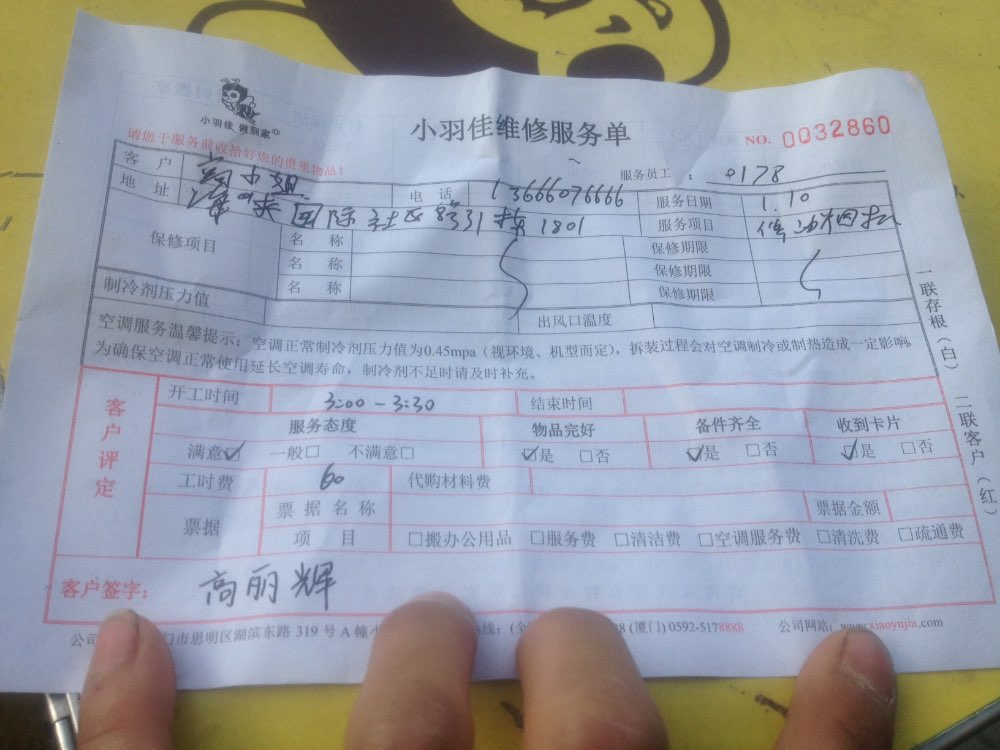 小羽佳 做到家
小羽佳维修服务单
NO. 0032860
请您于服务前收拾好您的贵重物品！
服务员工 ： 0178
客 户 高小姐 电 话 13666076666 服务日期 1.10
地 址 国际社区 331栋 1801 服务项目
保修项目 名 称 保修期限
名 称 保修期限
名 称 保修期限
制冷剂压力值 出风口温度
空调服务温馨提示：空调正常制冷剂压力值为0.45mpa（视环境、机型而定），拆装过程会对空调制冷或制热造成一定影响
为确保空调正常使用延长空调寿命，制冷剂不足时请及时补充。
客户评定
开工时间 3:00-3:30 结束时间
服务态度 物品完好 备件齐全 收到卡片
满意☑ 一般□ 不满意□ ☑是 □否 ☑是 □否 ☑是 □否
工时费 60 代购材料费
票据 票据名称 票据金额
项 目 □搬办公用品 □服务费 □清洁费 □空调服务费 □清洗费 □疏通费
客户签字： 高丽辉
公司 门市思明区湖滨东路 319 号 A 幢 线：(全 8 (厦门) 0592-5178888 公司网站：www.xiaoyujia.com
一联存根（白） 二联客户（红）